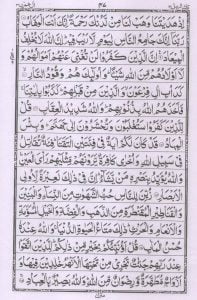 ٤٧
اِذْ هَدَيْتَنَا وَهَبْ لَنَا مِنْ لَّدُنْكَ رَحْمَةً اِنَّكَ اَنْتَ الْوَهَّابُ
رَبَّنَآ اِنَّكَ جَامِعُ النَّاسِ لِيَوْمٍ لَّا رَيْبَ فِيْهِ اِنَّ اللّٰهَ لَا يُخْلِفُ
الْمِيْعَادَ اِنَّ الَّذِيْنَ كَفَرُوْا لَنْ تُغْنِيَ عَنْهُمْ اَمْوَالُهُمْ وَلَآ
اَوْلَادُهُمْ مِّنَ اللّٰهِ شَيْئًا وَاُولٰٓئِكَ هُمْ وَقُوْدُ النَّارِ
كَدَاْبِ اٰلِ فِرْعَوْنَ وَالَّذِيْنَ مِنْ قَبْلِهِمْ كَذَّبُوْا بِاٰيٰتِنَا
فَاَخَذَهُمُ اللّٰهُ بِذُنُوْبِهِمْ وَاللّٰهُ شَدِيْدُ الْعِقَابِ قُلْ
لِّلَّذِيْنَ كَفَرُوْا سَتُغْلَبُوْنَ وَتُحْشَرُوْنَ اِلٰى جَهَنَّمَ وَبِئْسَ
الْمِهَادُ قَدْ كَانَ لَكُمْ اٰيَةٌ فِيْ فِئَتَيْنِ الْتَقَتَا فِئَةٌ تُقَاتِلُ
فِيْ سَبِيْلِ اللّٰهِ وَاُخْرٰى كَافِرَةٌ يَّرَوْنَهُمْ مِّثْلَيْهِمْ رَاْيَ الْعَيْنِ
وَاللّٰهُ يُؤَيِّدُ بِنَصْرِهٖ مَنْ يَّشَآءُ اِنَّ فِيْ ذٰلِكَ لَعِبْرَةً لِّاُولِي
الْاَبْصَارِ زُيِّنَ لِلنَّاسِ حُبُّ الشَّهَوٰتِ مِنَ النِّسَآءِ وَالْبَنِيْنَ
وَالْقَنَاطِيْرِ الْمُقَنْطَرَةِ مِنَ الذَّهَبِ وَالْفِضَّةِ وَالْخَيْلِ الْمُسَوَّمَةِ
وَالْاَنْعَامِ وَالْحَرْثِ ذٰلِكَ مَتَاعُ الْحَيٰوةِ الدُّنْيَا وَاللّٰهُ عِنْدَهٗ
حُسْنُ الْمَاٰبِ قُلْ اَؤُنَبِّئُكُمْ بِخَيْرٍ مِّنْ ذٰلِكُمْ لِلَّذِيْنَ اتَّقَوْا
عِنْدَ رَبِّهِمْ جَنّٰتٌ تَجْرِيْ مِنْ تَحْتِهَا الْاَنْهٰرُ خٰلِدِيْنَ فِيْهَا وَ
اَزْوَاجٌ مُّطَهَّرَةٌ وَّرِضْوَانٌ مِّنَ اللّٰهِ وَاللّٰهُ بَصِيْرٌ بِالْعِبَادِ